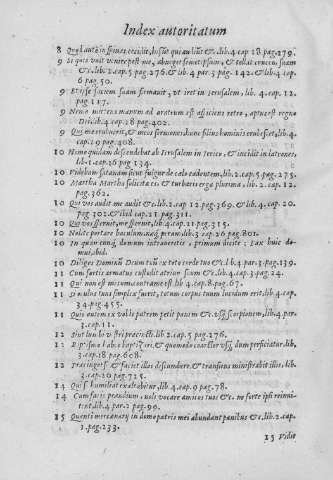 Index autoritatum
8 lib.4.cap 18.pag.279.
9 Si quis vult venire post me, abneget semet ipsum, & tollat crucem suam
& c. lib.2.cap.5 pag.276. & lib 4.par.3 pag.142. & lib.4 cap.
6 pag.50.
9 faciem suam firmavit, ut iret in Jerusalem, lib.4.cap.12.
pag.117.
9 Nemo mittens manum ad aratrum est aspiciens retro, aptus est regno
Dei. lib.4.cap.18 pag.402.
9 Qui me erubuerit, & meos sermones, hunc filius hominis erubescet, lib.4.
cap.29 pag.408.
10 Homo quidam descendebat ab Jerusalem in Jerico, & incidit in latrones,
lib.1.cap.26 pag 134.
10 Videbam satanam sicut fulgur de celo cadentem, lib.2.cap.5 pag.275.
10 Martha Martha solicita es & turbaris erga plurima, lib.2.cap.12.
pag.362.
10 Qui vos audit me audit & c. lib.2.cap.12 pag.369. & lib.4.cap.20
pag 302. cap.21 pag.311.
10 Qui vos spernit, me spernit, lib.4.cap.21 pag.315.
10 Nolite portare lib.3 cap 26 pag 801.
10 In quam cunq domum intraveritis, primum dicite : pax huic do-
mui, ibid.
10 Diliges Dominum Deum tuum ex toto corde tuo & c. lib.4 par.3 pag.139.
11 Cum fortis armatus custodit atrium suum & c. lib.4 cap.3 pag.24.
11 Qui non est mecum, contra me est lib 4.cap.8 pag.67.
11 Si oculus tuus simplex fuerit, totum corpus tuum lucidum erit, lib 4.cap.
34 pag 455.
11 Quis autem ex vobis patrem petit panem & usq scorpionem, lib 4.par.
3.cap.11.
12 Sint lumbi vestri precincti lib.2.cap.5 pag.276.
12 habeo baptizari, & quomodo coarctor usq dum perficiatur, lib.
3.cap.18 pag 608.
12 Praecinget & faciet illos discumbere, & transiens ministrabit illis, lib.
3.cap.20 pag 725.
14 Qui se humiliat exaltabitur, lib.4 cap.9 pag.78.
14 Cum facis prandium, noli vocare amicos tuos & c. ne forte ipsi reinvi-
tent. lib.4 par.2 pag.99.
15 Quanti mercenarij in domo patris mei abundant panibus & c. lib.2.cap.
1.pag.233.
15 Vidit